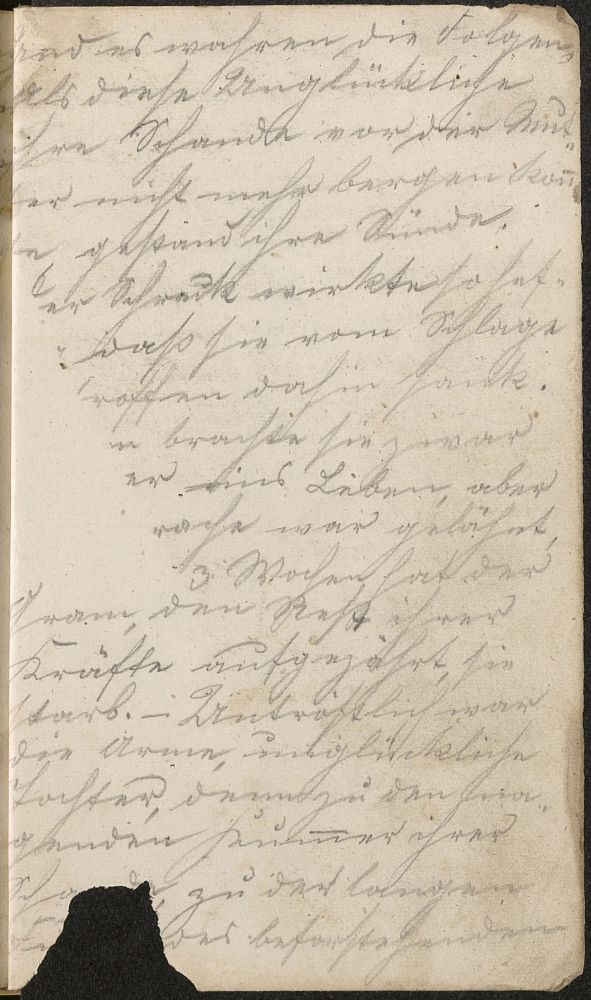 und es wahren die Folgen,
als diese Unglückliche
ihre Schande vor der Mut=
ter nicht mehr bergen kon̄
te gestand ihre Sünde.
er Schreck wirkte so hef=
daß sie vom Schlage
roffen dahin sank.
n brachte sie zwar
er ins Leben, aber
rache war gelähmt,
3 Wochen hat der
Gram, den Rest ihrer
Kräfte aufgezährt, sie
starb. – Untröstlich war
die Arme, unglückliche
Tochter, denn zu den na=
genden Kum̄er ihrer
zu der langen
des beforstehenden